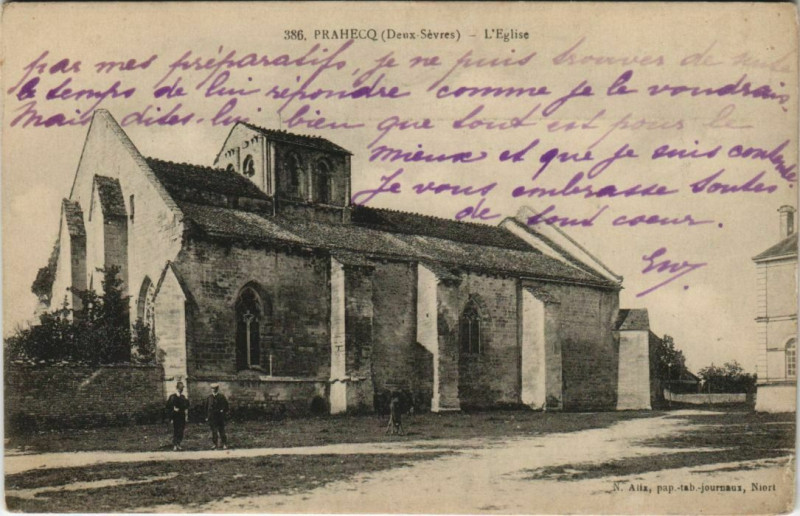 386. PRAHECQ (Deux-Sèvres) – L'Eglise
par mes préparatifs, je ne puis trouver de suite
le temps de lui répondre comme je le voudrais.
Mais dites-lui bien que tout est pour le
mieux et que je suis contente.
Je vous embrasse toutes
de tout coeur.
N. Aita, pap.-tab.-journaux, Niort